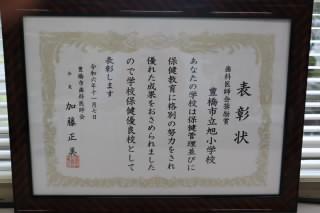 表彰状
歯科医師会奨励賞
豊橋市立旭小学校
あなたの学校は保健管理並びに
保健教育に格別の努力をされ
優れた成果をおさめられました
ので学校保健優良校として
表彰します
令和六年十一月七日
豊橋市歯科医師会
会長 加藤正美